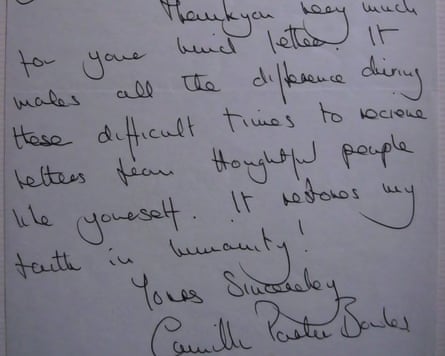 Thankyou very much
for your kind letter! It
makes all the difference during
these difficult times to recieve
letters from thoughtful people
like yourself. It restores my
faith in humanity!
Yours Sincereley
Camilla Parker Bowles